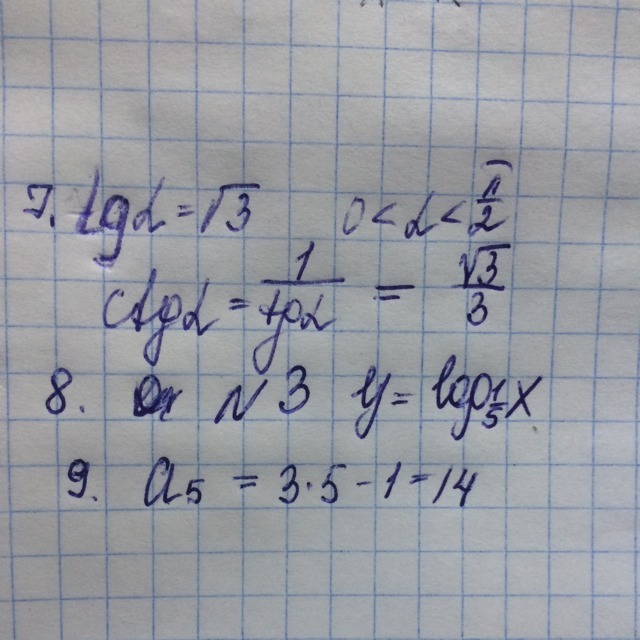 7. tgα = √3 0 < α < π/2
ctgα = 1/tgα = √3/3
8. N 3 y = log 1/5 x
9. a5 = 3·5 - 1 = 14